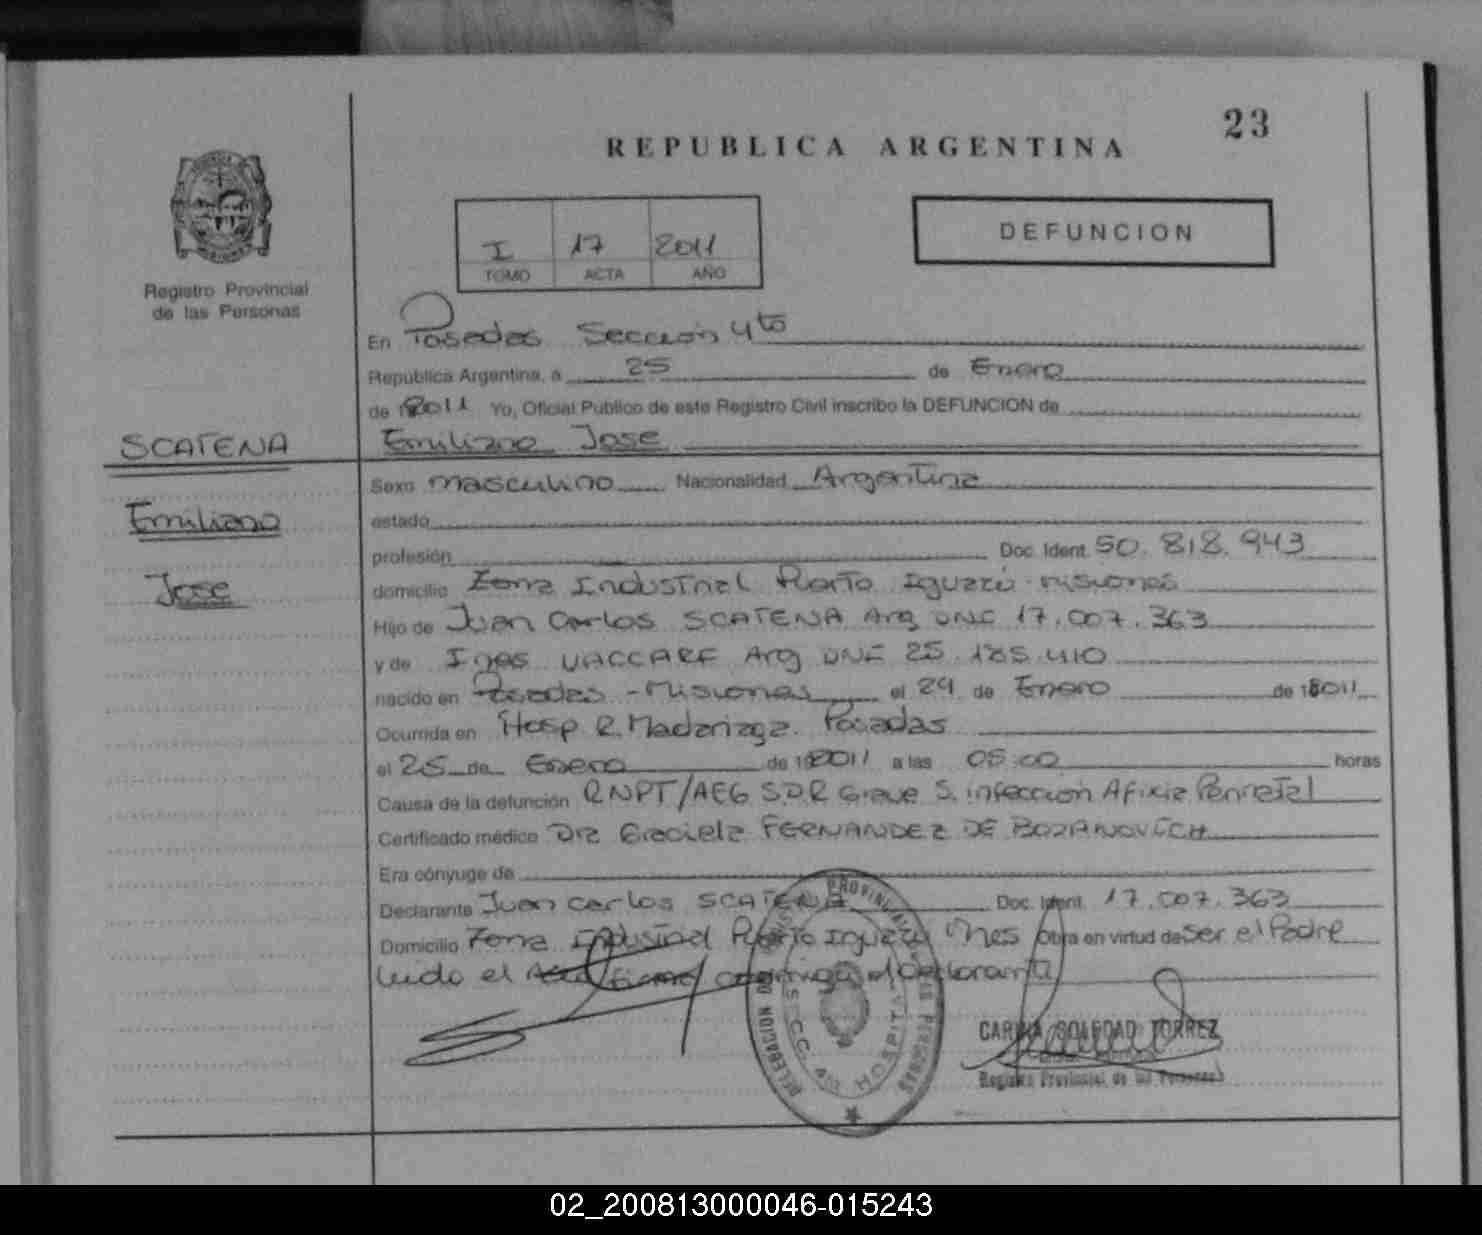 23
REPUBLICA ARGENTINA
I 17 2011
TOMO ACTA AÑO
DEFUNCION
Registro Provincial
de las Personas
En Posadas Sección 4ta
República Argentina, a 25 de Enero
de 2011 Yo, Oficial Público de este Registro Civil inscribo la DEFUNCION de
SCATENA Emiliano Jose
Sexo masculino Nacionalidad Argentina
Emiliano
estado
profesión Doc. Ident. 50.818.943
Jose
domicilio Zona Industrial Puerto Iguazú - misiones
Hijo de Juan Carlos SCATENA Arg DNI 17.007.363
y de Ines VACCARE Arg DNI 25.185.410
nacido en Posadas - Misiones el 24 de Enero de 2011
Ocurrida en Hosp R. Madariaga. Posadas
el 25 de Enero de 2011 a las 05:00 horas
Causa de la defunción RNPT/AEG S.D.R Grave S. infección Afixia Perinatal
Certificado médico Dra Graciela FERNANDEZ DE BOZANOVICH
Era cónyuge de
Declarante Juan Carlos SCATENA Doc. Ident. 17.007.363
Domicilio Zona Industrial Puerto Iguazú Mnes Obra en virtud de Ser el Padre
Leido el Acta firma conmigo el Declarante
DELEGACION REGISTRO PROVINCIAL DE LAS PERSONAS
SECC. 4ta HOSPITAL
CARINA SOLEDAD TORREZ
Registro Provincial de las Personas
02_200813000046-015243